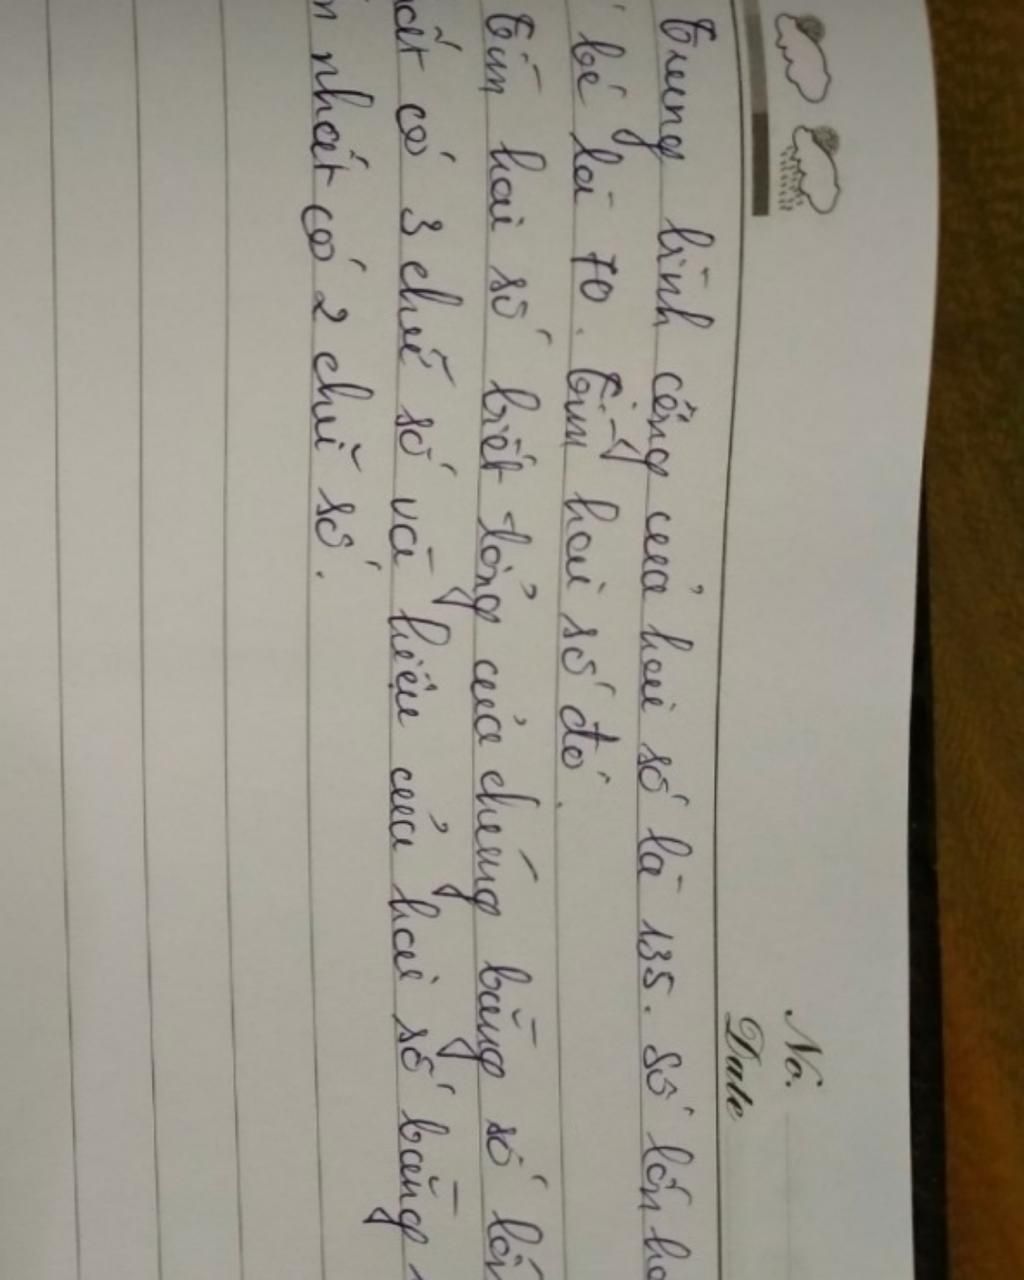 No.
Date
Trung bình cộng của hai số là 135. Số lớn hơ
bé là 70. Tìm hai số đó.
Tìm hai số biết tổng của chúng bằng số lớn
hất có 3 chữ số và hiệu của hai số bằng
n nhất có 2 chữ số.